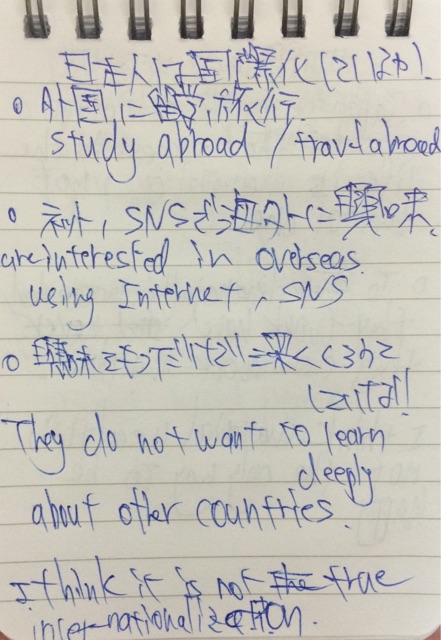 日本人は国際化しているか?
○ 外国に留学、旅行.
study abroad / travel abroad
○ ネット, SNSで海外に興味.
are interested in overseas.
using Internet, SNS
○ 興味を持ってだけど深くしろうと
していない!
They do not want to learn
deeply
about other countries.
I think it is not the true
internationalization.